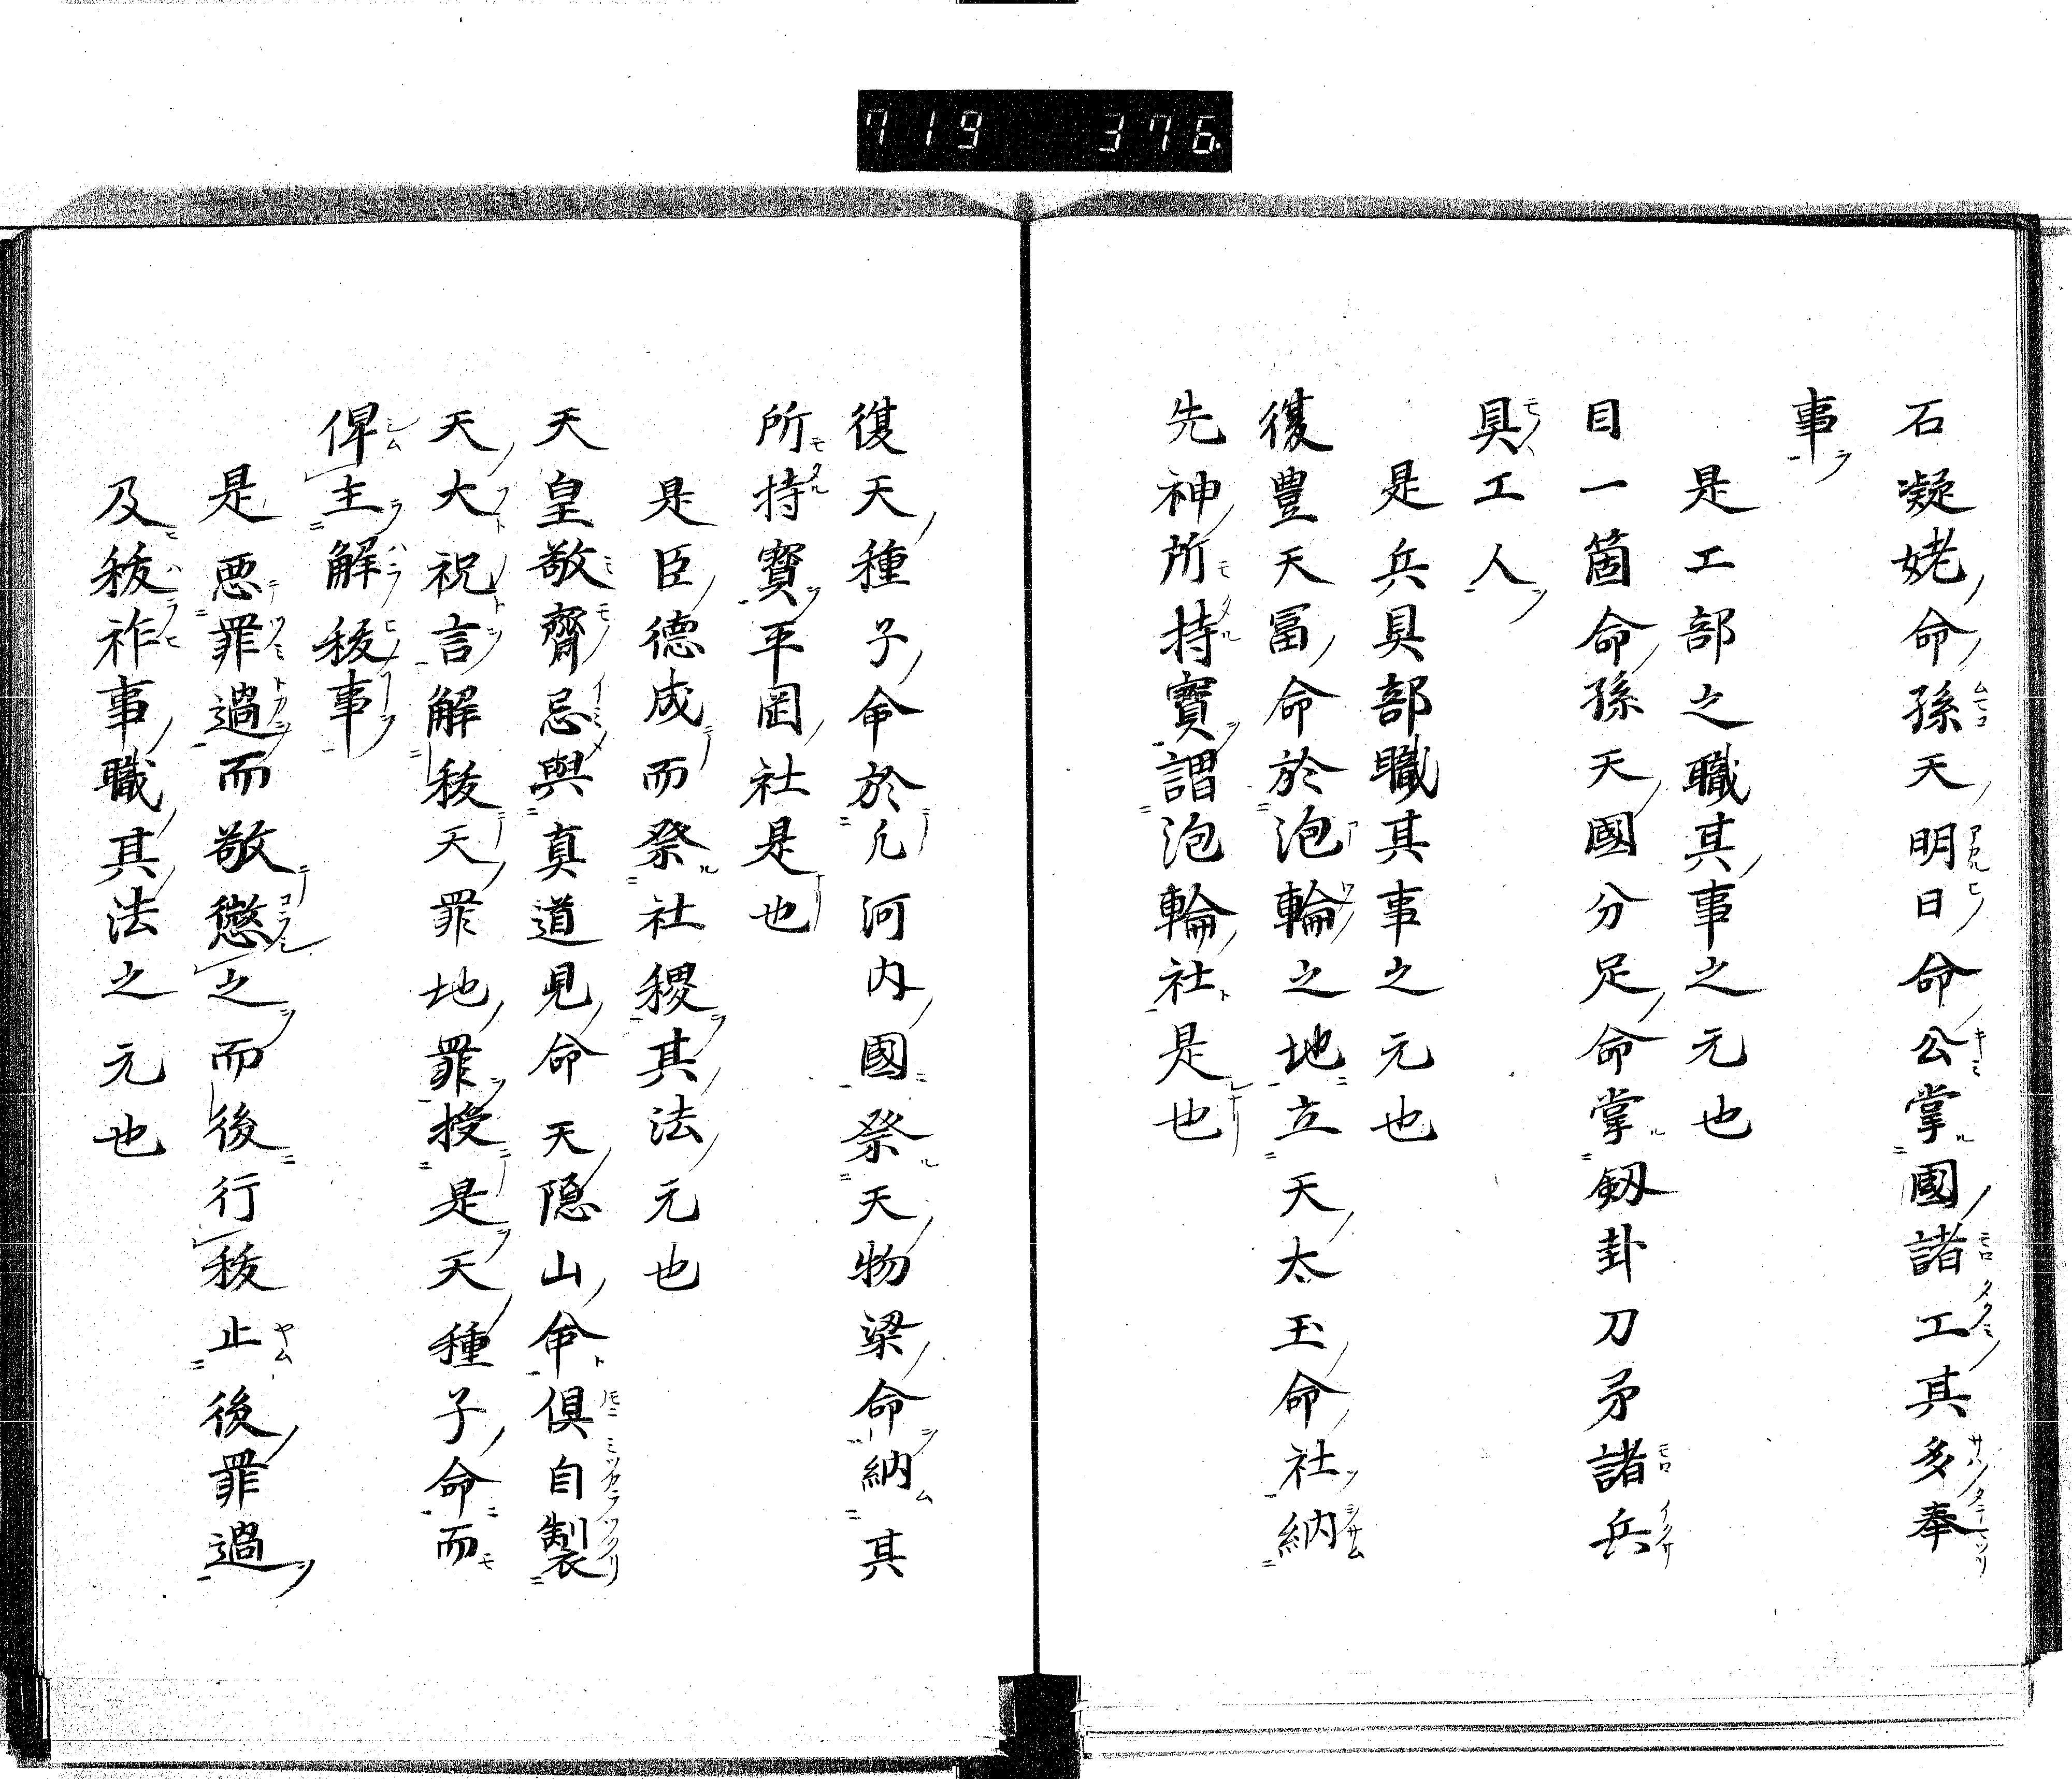 719 376
石凝姥命孫天明日命公掌國諸工其多奉
事
是工部之職其事之元也
目一箇命孫天國分足命掌剱卦刀矛諸兵
具工人
是兵具部職其事之元也
復豊天冨命於泡輪之地立天太玉命社納
先神所持寳謂泡輪社是也
復天種子命於凢河内國祭天物梁命納其
所持寳平岡社是也
是臣德成而祭社稷其法元也
天皇敬齋忌與真道見命天隠山命俱自製
天大祝言解秡天罪地罪授是天種子命而
俾主解秡事
是悪罪過而敬懲之而後行秡止後罪過
及秡祚事職其法之元也